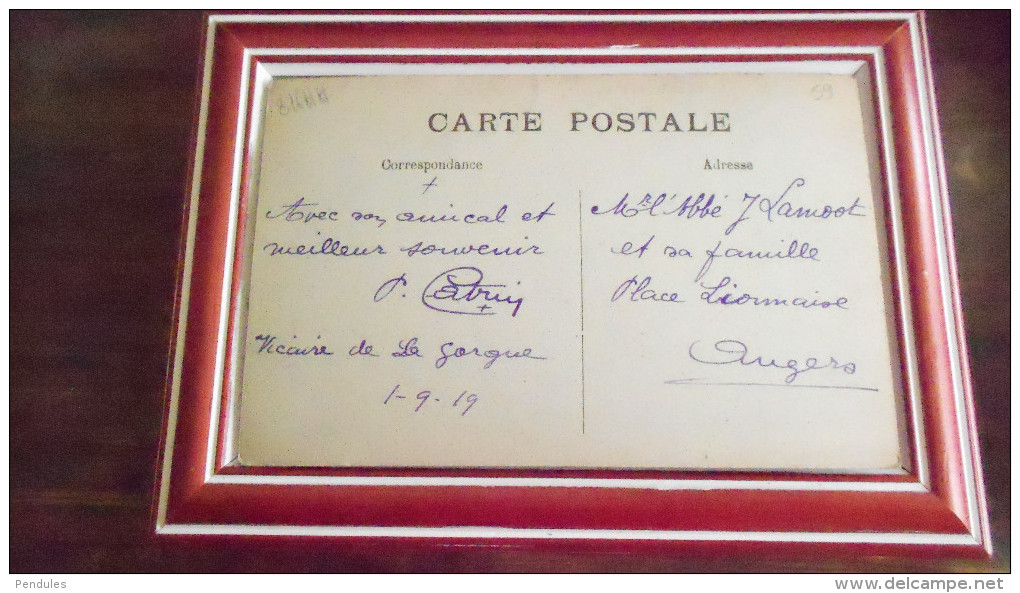 59
CARTE POSTALE
Correspondance
Adresse
+
Avec son amical et
meilleur souvenir
P. Catrin
Vicaire de La Gorgue
1-9-19
Mr l'Abbé J Lamoot
et sa famille
Place Lionnaise
Angers
Pendules
www.delcampe.net